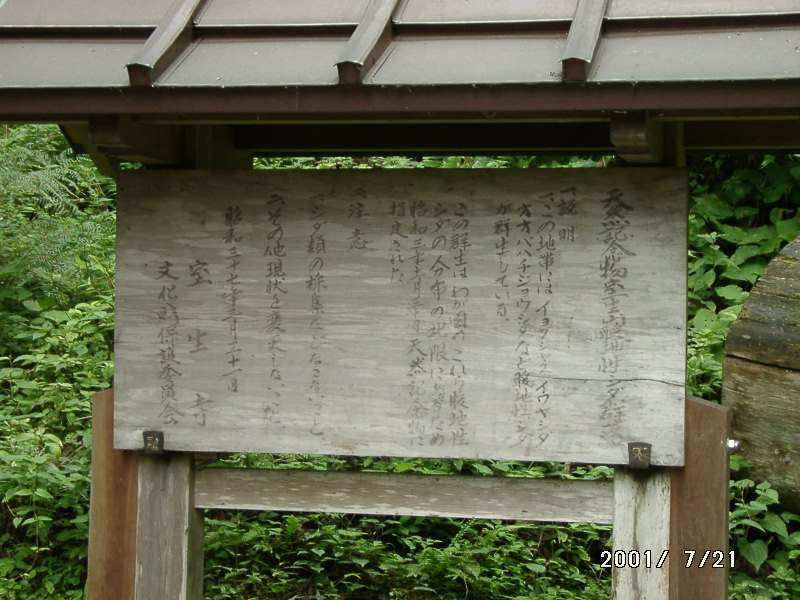 天然記念物室生山暖地性シダ群落
一、説明
この地帯には イヨクジャク イワヤシダ
オオバハチジョウシダなど暖地性シダ
が群生している。
この群生はわが国のこれら暖地性
シダの分布の北限にちかいため
天然記念物に
指定された。
二、注意
シダ類の採集をしないこと
その他現状を変更しないこと
室生寺
文化財保護委員会
2001/ 7/21